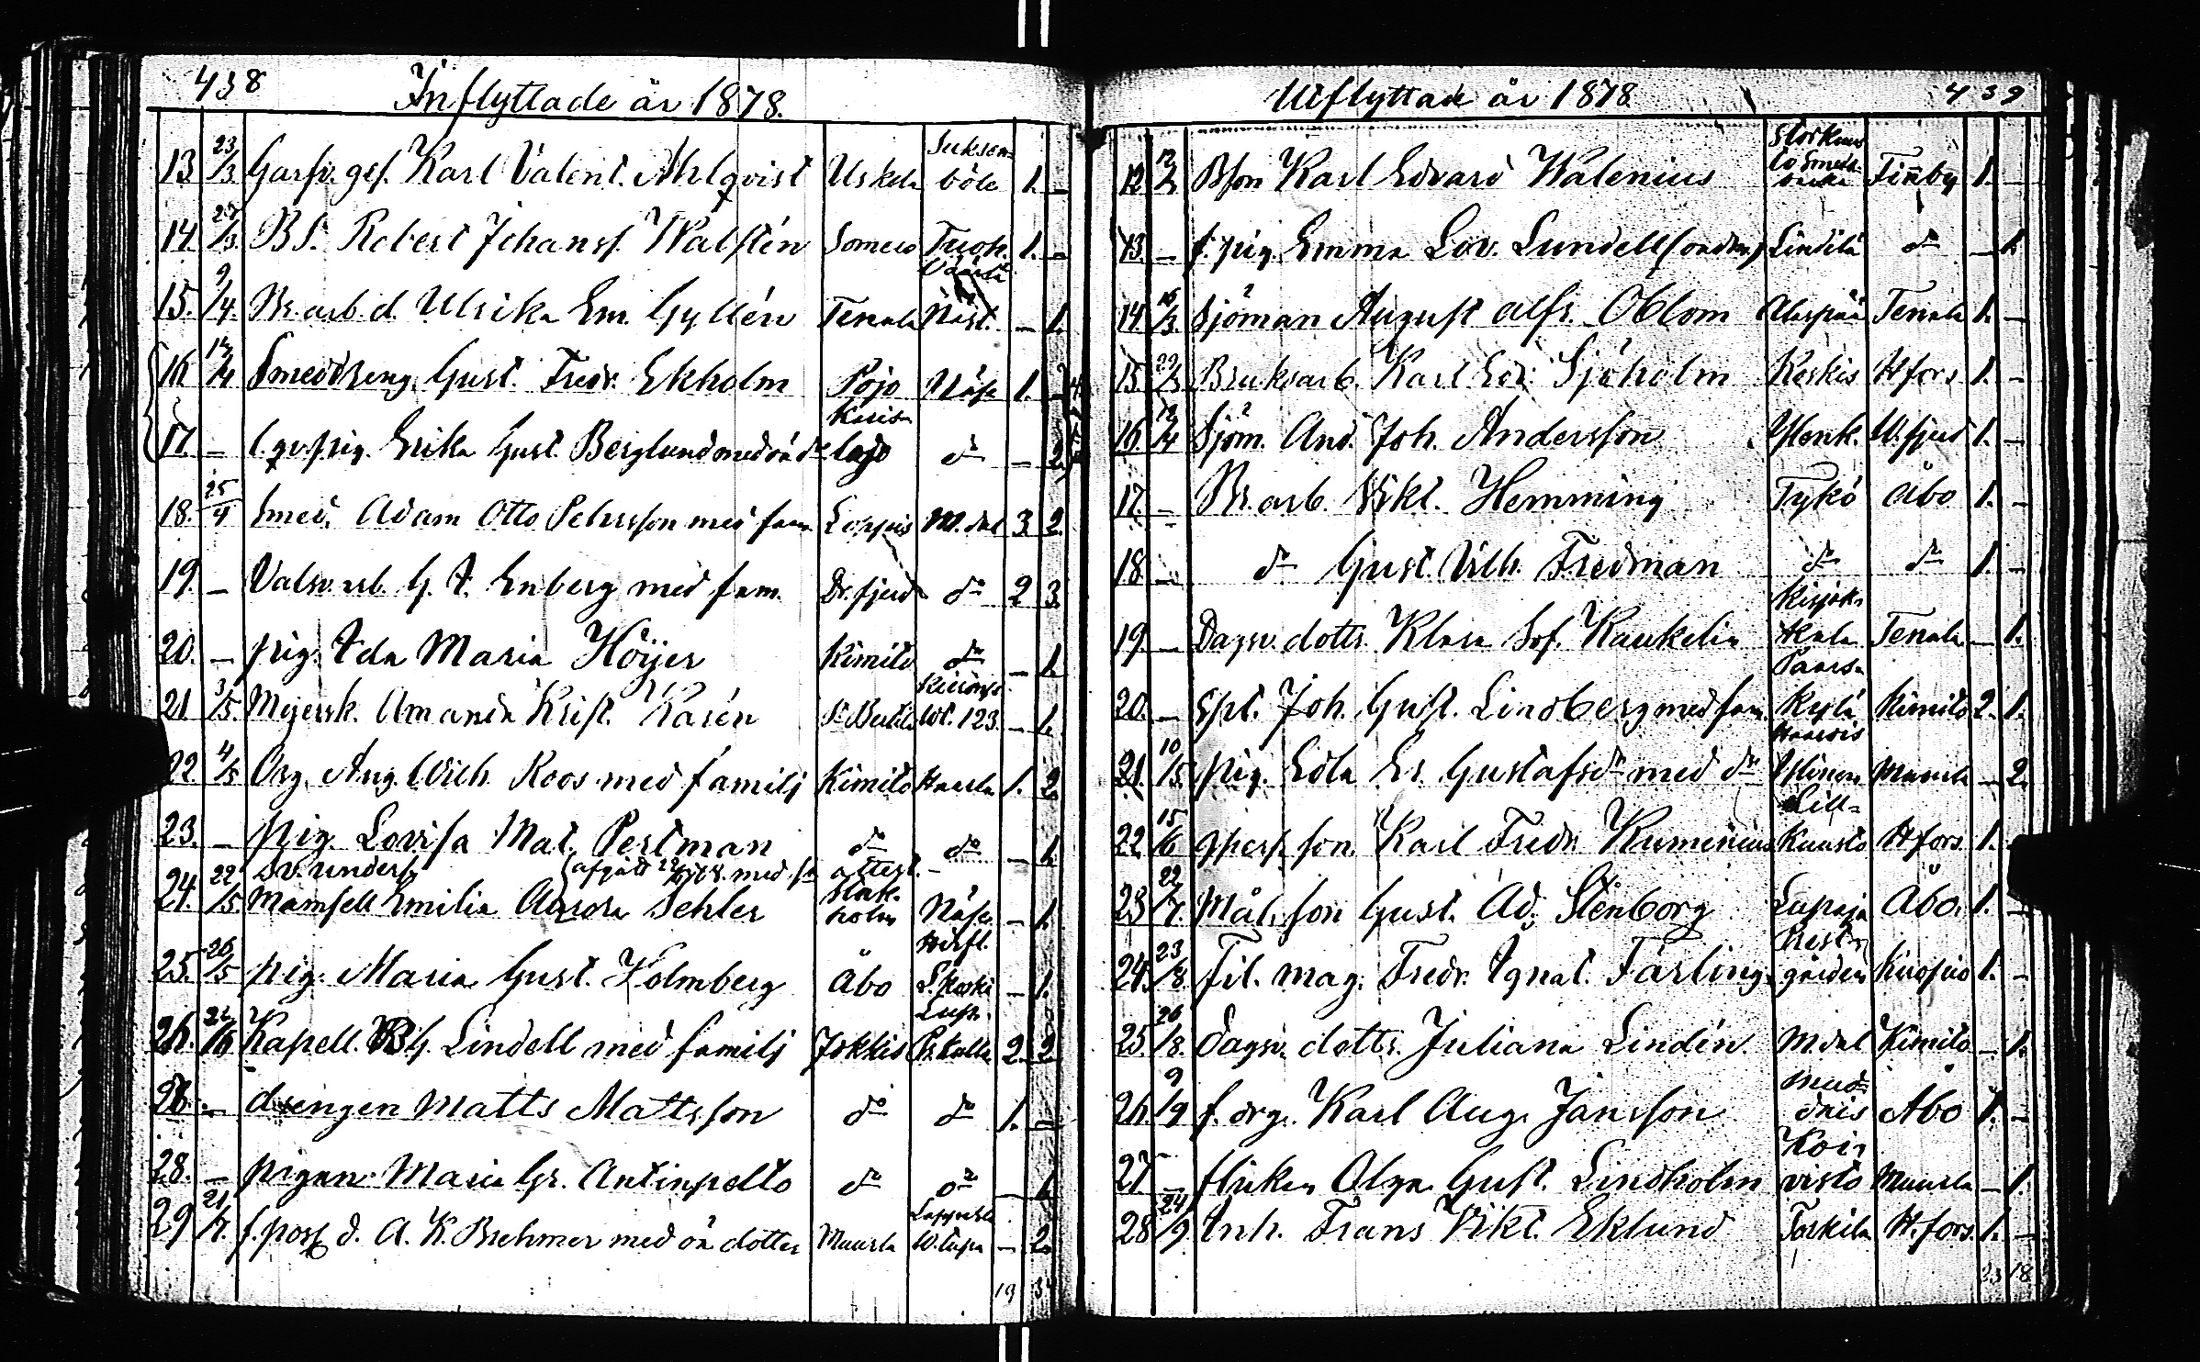 438
Inflyttade år 1878.
13. 23/3 Garfv. ges. Karl Valent. Ahlqvist Uskela Suksenböle 1. –
14. 25/3. BS. Robert Johanss. Walstén Somero Tuoh. 1. –
15. 9/4. Br. arb. d. Ulrika Em. Gyllén Tenala Näst. – 1.
16 12/4 Smeddreng Gust. Fredr. Ekholm Pojo Näse 1. –
17. – pig. Erika Gust. Berglund med oä dr Karislojo do – 2.
18. 25/4 Smed. Adam Otto Pehrsson med fam. Loppis M.dal 3 2.
19. – Valsv. arb. G. A. Enberg med fam. Dr.fjerd do 2 3.
20. – pig. Ida Maria Höijer Kimito do – 1.
21 3/5. Mejersk. Amanda Krist. Karén St Bertils Wt. 123. – 1.
22 4/5 Org. Aug. Wilh. Roos med familj Kimito Haarla 1. 2.
23. – pig. Lovisa Mat. Pertman do do – 1.
24. 22/5. Mamsell Emilia Aurora Sehler Stockholm Näse – 1.
25. 26/5 pig. Maria Gust. Holmberg Åbo – 1.
Kapell. G. Lindell med familj Jokkis Pr. tulla 2. 2.
– drengen Matts Mattsson do do 1. –
28. – pigan Maria Gr. Antinpelto do do 1.
29 21/7. f. poss. d. A. K. Brehmer med oä dotter Muurla – 2.
19 34
Utflyttade år 1878 439
12 12/2 Bson Karl Edvard Walenius Finby 1. –
13. – f. pig. Emma Lov. Lundell Lindilä do – 1.
14. 15/3. Sjöman August Alfr. Oblom Tenala 1. –
15 29/3 Bruksarb. Karl Edv. Sjöholm Koskis H.fors 1. –
16. 12/4 Sjöm. And. Joh. Andersson W.fjerd 1. –
17. – Br. arb. Vikt. Hemming Tykö Åbo 1. –
18 – do Gust. Vilh. Fredman do do 1. –
19. – Dagsv. dottr. Klara Sof. Kaukelin Kirjakkala Tenala – 1.
20. – Spt. Joh. Gust. Lindberg med fam. Paarskylä Kimito 2. 1.
21. 10/5 pig. Edla Er. Gustafsdr med dr Muurla – 2.
22. 15/6 son Karl Fredr. Kumenius Lillkuusto H.fors. 1.
23 22/7. Mål. son Gust. Ad. Stenborg Lupaja Åbo. 1. –
24. 23/8. Fil. mag. Fredr. Ignat. Färling Prestgården Kuopio 1. –
25. 26/8. Dagsv. dottr. Juliana Lindén M.dal Kimito – 1.
26. 9/9 f. drg. Karl Aug. Jansson Åbo 1. –
27 – flickan Olga Gust. Lindholm Koivisto Muurla – 1.
28 24/9 Inh. Frans Vikt. Eklund Torkila H.fors. 1. –
23 18